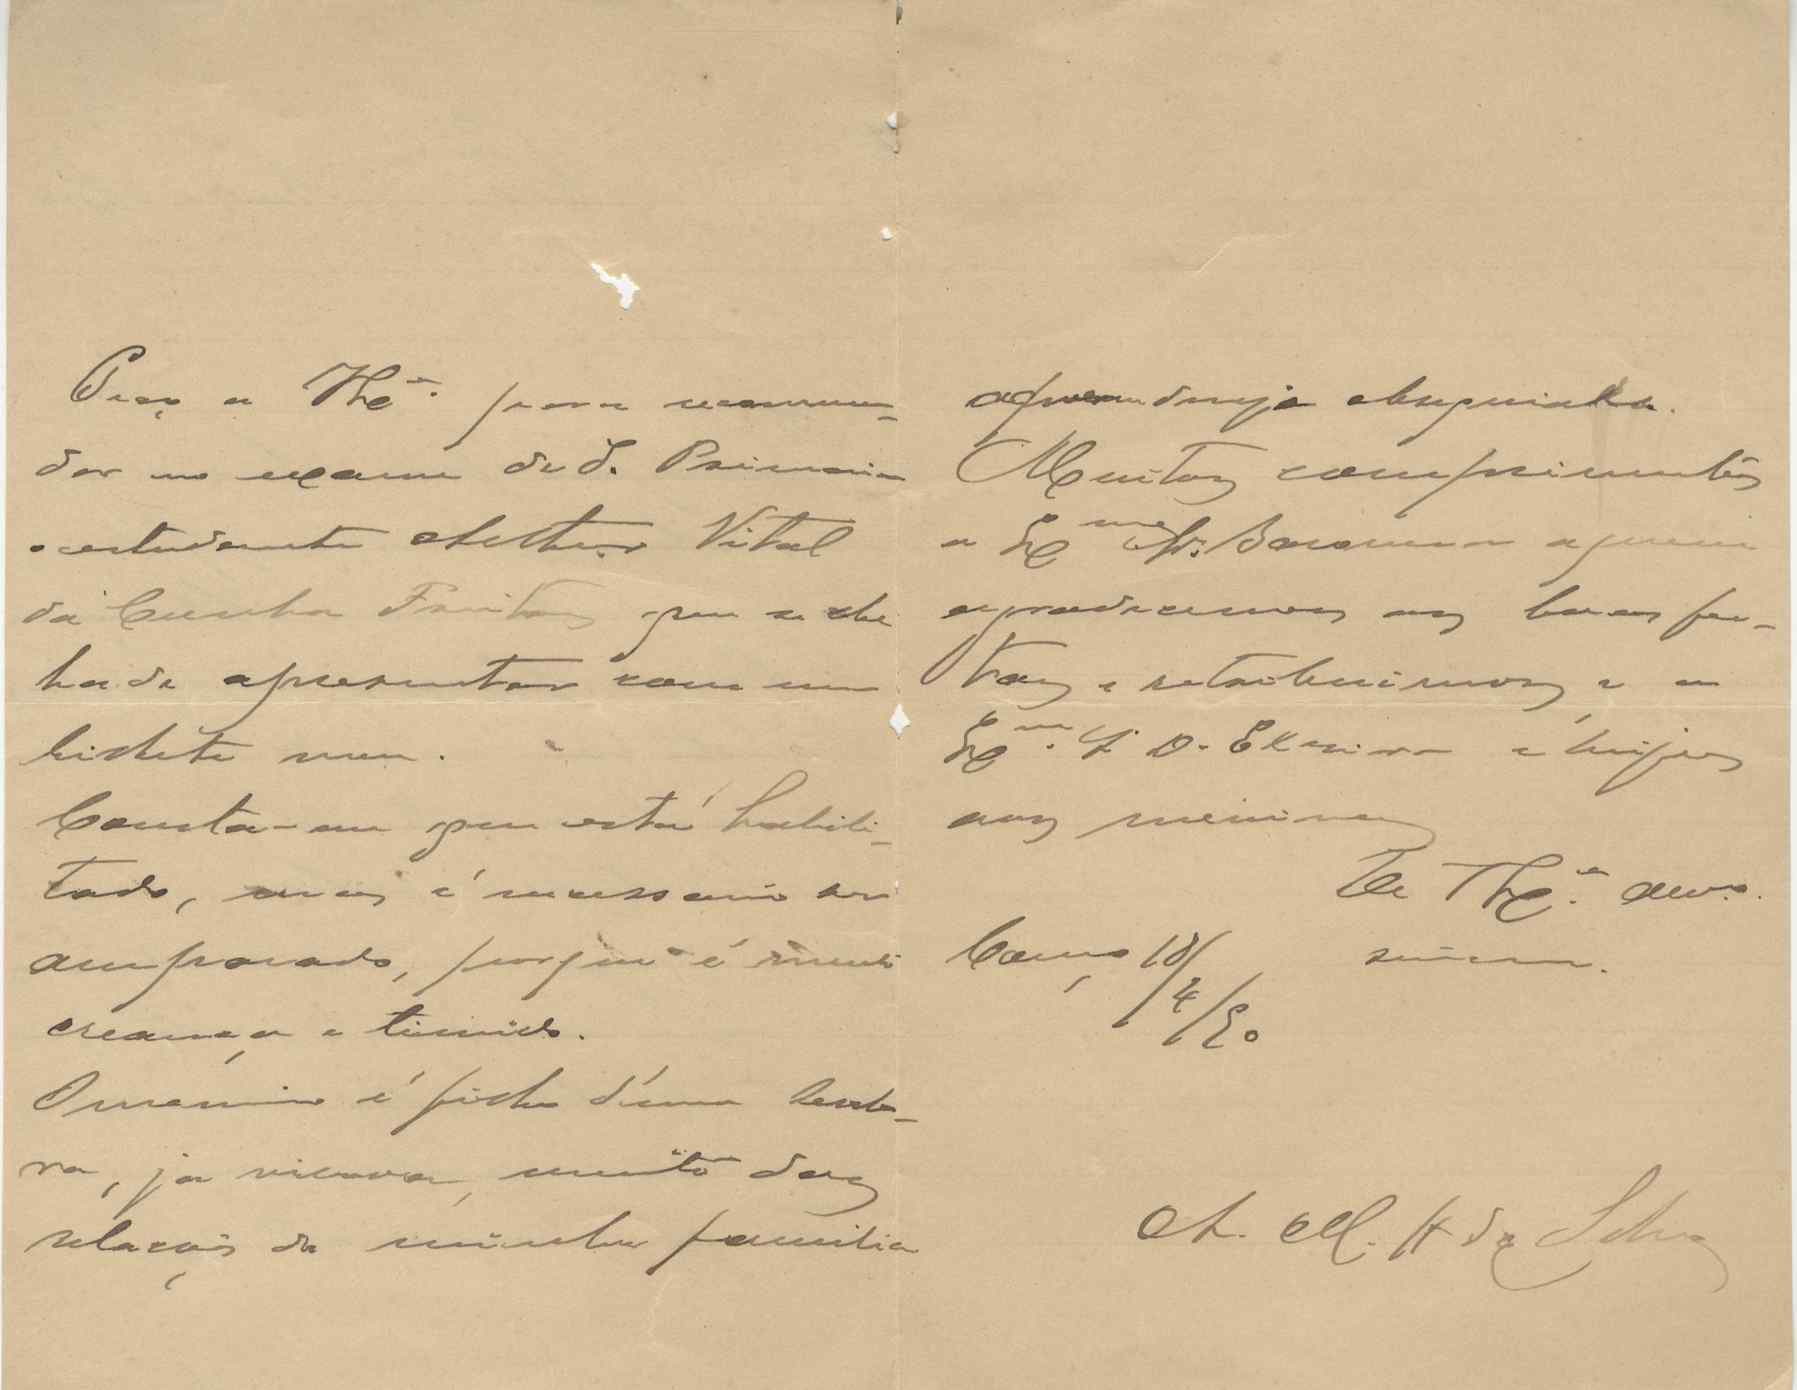 Peço a V.Ex.ª para recommen-
dar no exame de I. Primaria
o estudante Arthur Vital
da Cunha Freitas que se lhe
hade apresentar com um
bilhete meu.
Consta-me que está habili-
tado, mas é necessario ser
amparado, porque é muito
creança e timido.
O menino é filho d'uma senho-
ra, ja viuva, muito das
relações da minha familia
a quem desejo obsequiar.
Muitos comprimentos
a Ex.ma Sr.ª Baroneza a quem
agradecemos as boas fes-
tas e retribuimos, e a
Ex.ma Sr.ª D. Elzira e beijos
aos meninos
De V.Ex.ª am.º
Cares 18/4/90
A. M. H da Silva